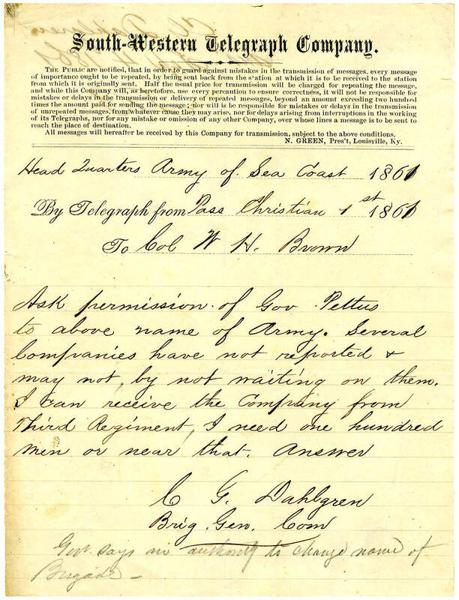 South-Western Telegraph Company.
The Public are notified, that in order to guard against mistakes in the transmission of messages, every message
of importance ought to be repeated, by being sent back from the station at which it is to be received to the station
from which it is originally sent. Half the usual price for transmission will be charged for repeating the message,
and while this Company will, as heretofore, use every precaution to ensure correctness, it will not be responsible for
mistakes or delays in the transmission or delivery of repeated messages, beyond an amount exceeding two hundred
times the amount paid for sending the message; nor will it be responsible for mistakes or delays in the transmission
of unrepeated messages, from whatever cause they may arise, nor for delays arising from interruptions in the working
of its Telegraphs, nor for any mistake or omission of any other Company, over whose lines a message is to be sent to
reach the place of destination.
All messages hereafter be received by this Company for transmission, subject to the above conditions.
N. GREEN, Pres't, Louisville, Ky.
Head Quarters Army of Sea Coast 1861
By Telegraph from Pass Christian 1st 1861
To Col W H. Brown
Ask permission of Gov Pettus
to above name of Army. Several
Companies have not reported &
may not, by not waiting on them.
I can receive the Company from
Third Regiment, I need one hundred
men or near that. Answer
C G. Dahlgren
Brig. Gen. Com
Gov. says no authority to change name of
Brigade –